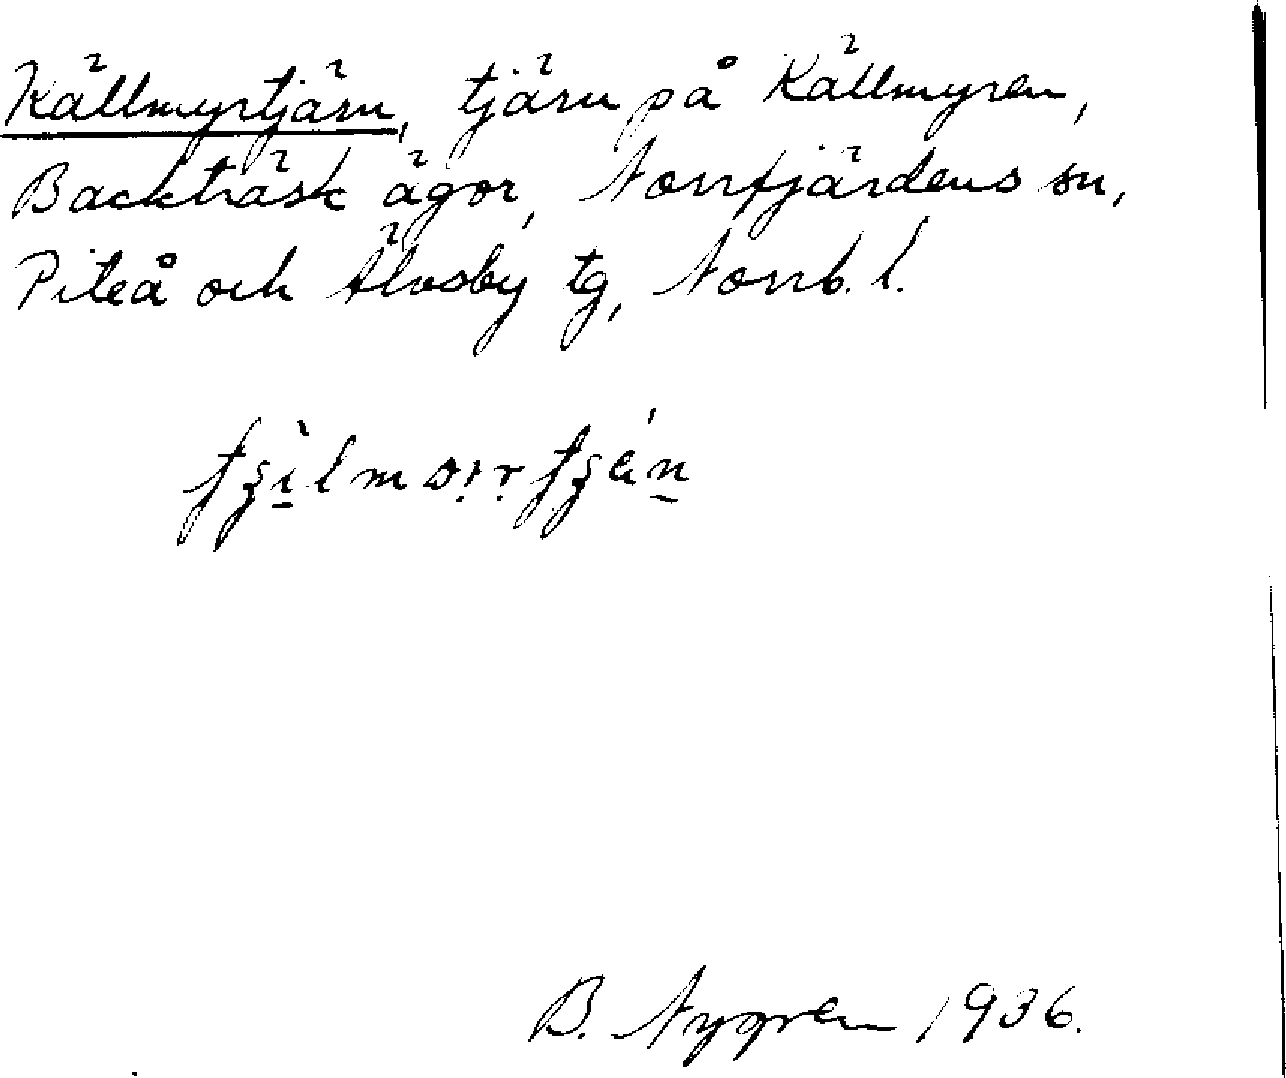 Källmyrtjärn, tjärn på Källmyren,
Backträsk ägor, Norrfjärdens sn,
Piteå och Älvsby tg, Norrb. l.
B. Nygren 1936.